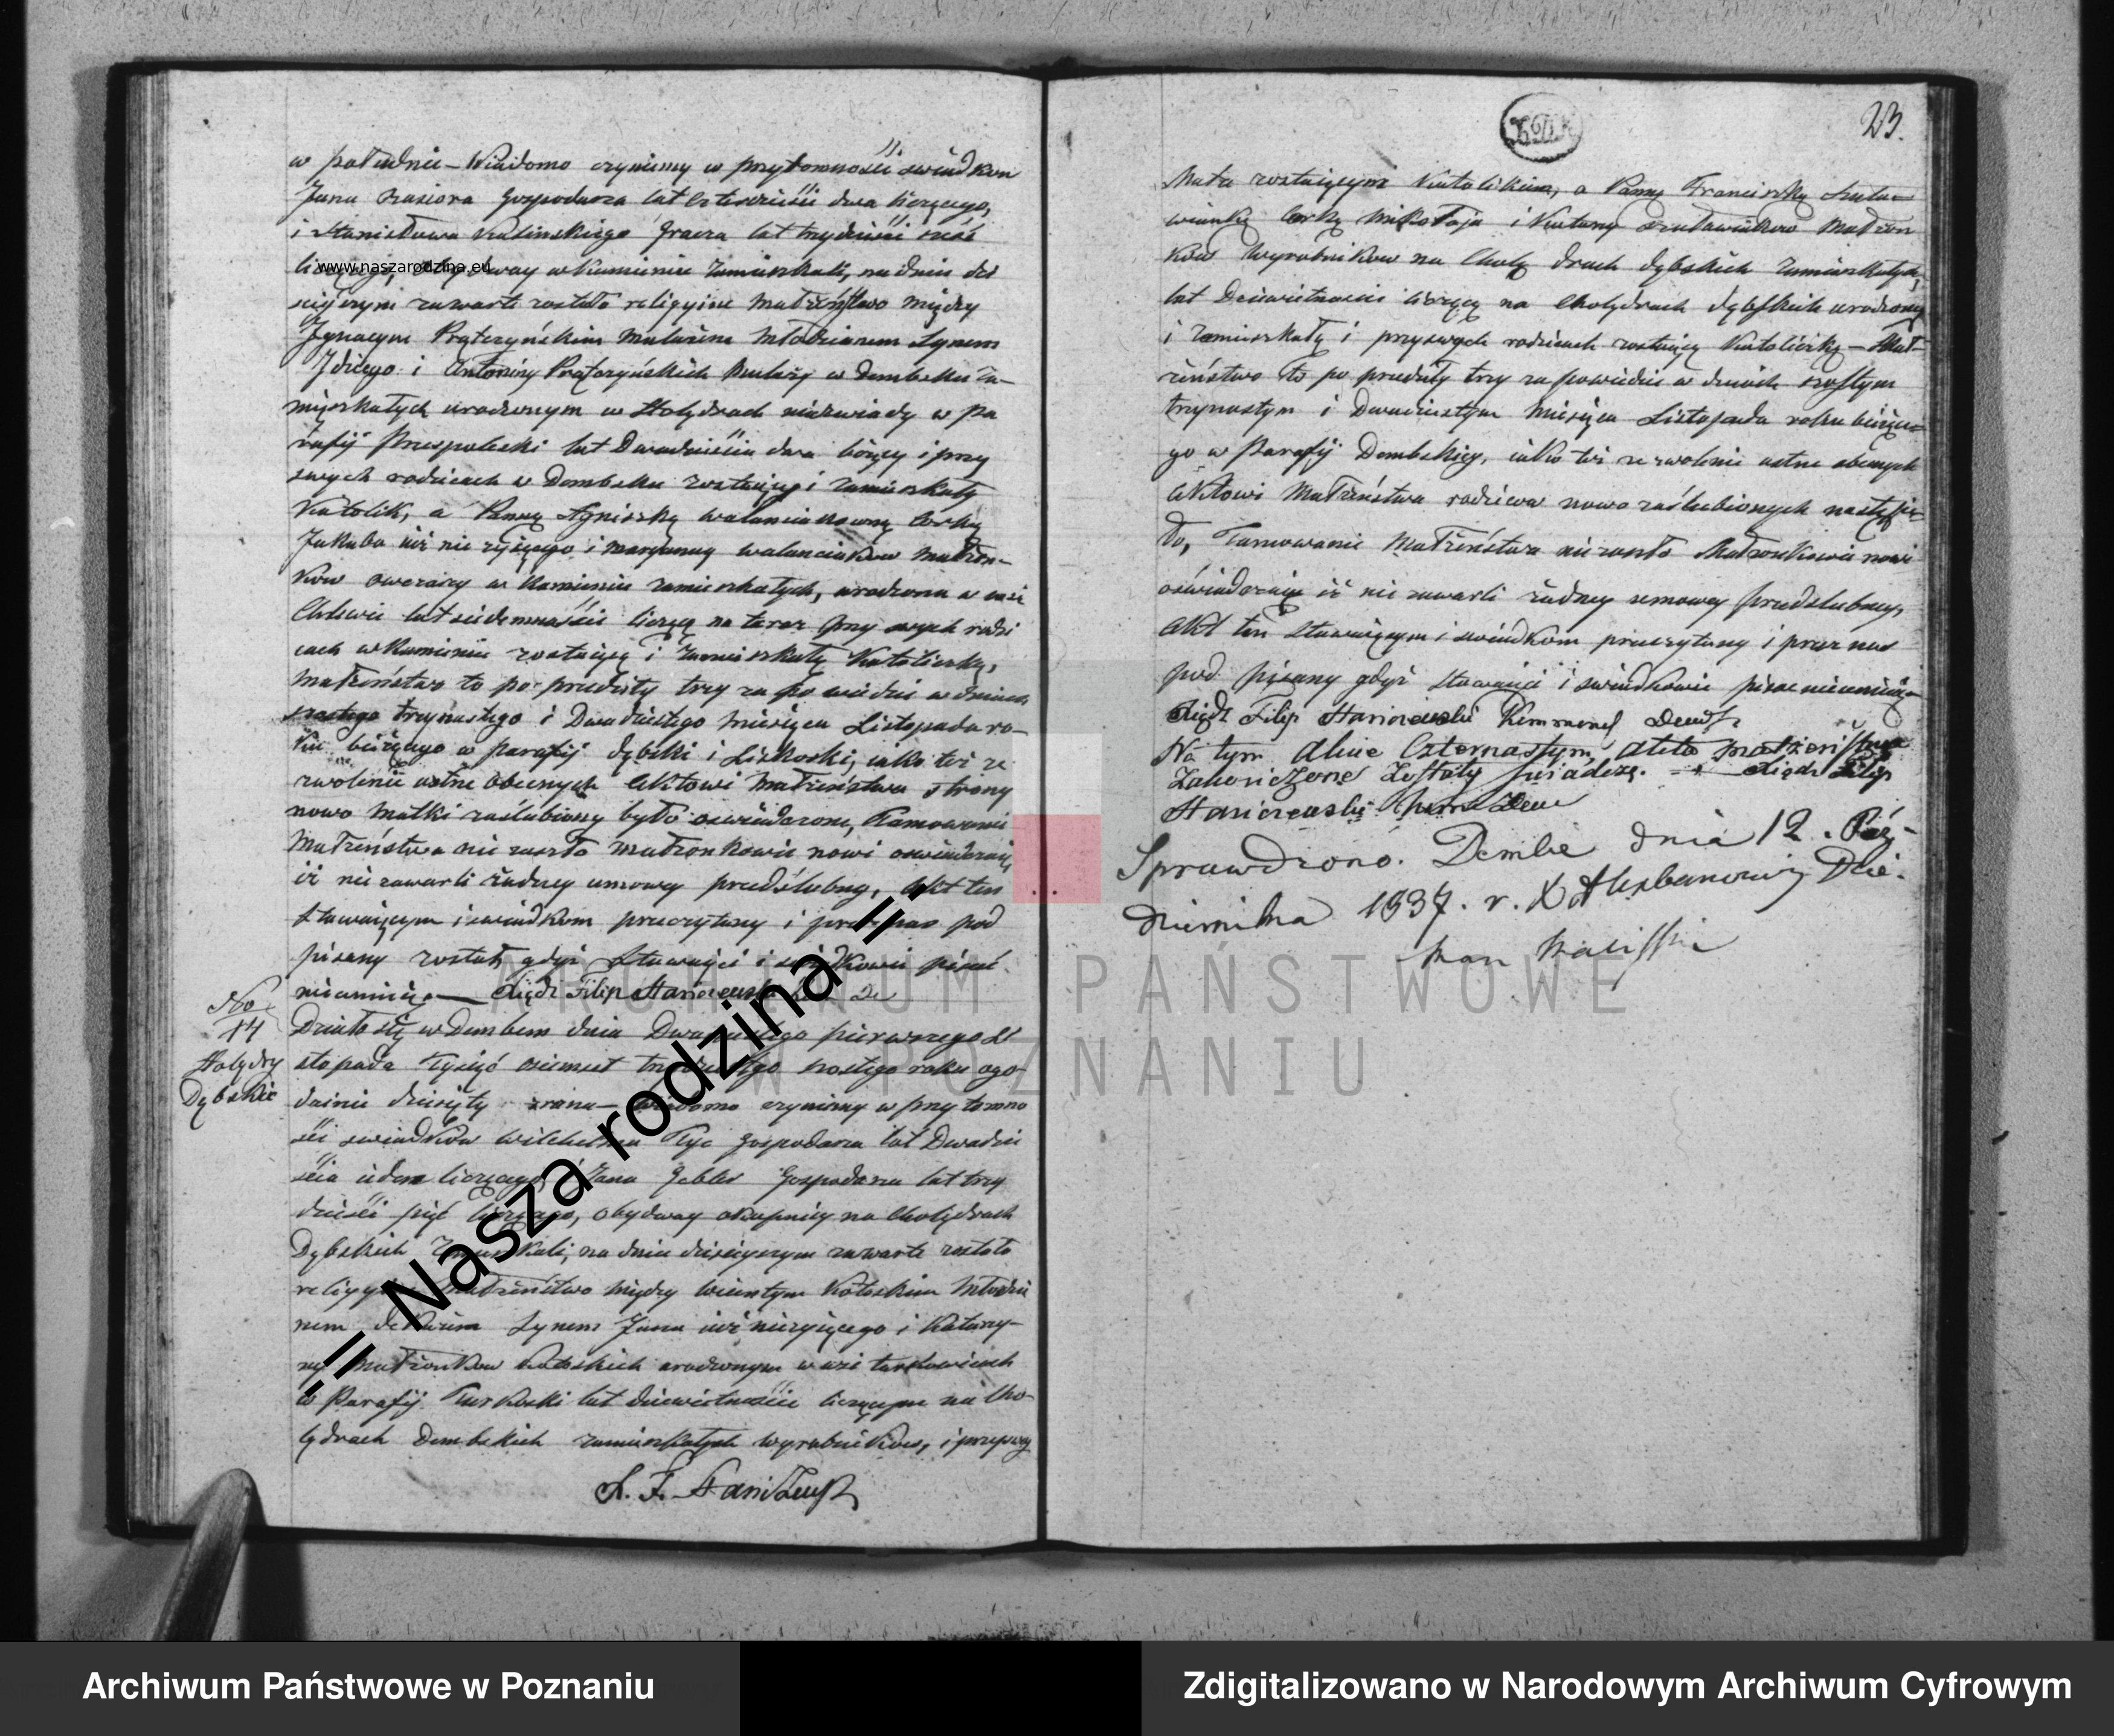 w południe – Wiadomo czynimy w przytomności świadków
Jana Gospodarza lat czterdzieści dwa liczącego,
i Stanisława Kalinskiego gracza lat trzydzieści sześć
liczącego, obydway w Kamieniu zamieszkali, na dniu dzi
sieyszym zawarte zostało religijne małżeństwo między
Ignacym Prątczyńskim Młodzianem Synem
Idziego i Antoniny Prątczyńskich w Dembsku za-
mięszkałych urodzonym w Holędrach w pa
rafij lat Dwadzieścia dwa liczący i przy
swych rodzicach w Dembsku zostaiący i zamieszkały
Katolik, a Panną Agniszką Walanciakowną Corką
Jakuba iuż nie żyjącego i Maryanny Walanciaków Małżon-
ków w Kamieniu zamieszkałych, urodzona w wsi
Chlewie lat siedemnaście liczącą na teraz przy swych rodzi
cach w Kamieniu zostaiącą i zamieszkałą Katoliczką,
Małżeństwo to po-przedziły trzy zapowiedzi w dniach
szostego trzynastego i Dwudziestego miesiąca Listopada ro-
ku bieżącego w parafij dębski i Liskoski, iako też ze
zwolenie ustne obecnych Aktowi Małżeństwa strony
nowo matki zaślubiony było oświadczone, Tamowanie
Małżeństwa nie zaszło małżonkowie nowi oświadczaią
iż nie zawarli żadney umowy przedślubny, Akt ten
stawaiącym i świadkom przeczytany i przez nas pod
pisany został, gdyż Stawaiący i świadkowie pisać
nieumieią. — Xiądz Filip Staniszewski
No
14
Holędry
Dębskie
Działo się w Dembem dnia Dwudziestego pierwszego Li
stopada Tysiąć osiemset trzydziestego szostego roku ogo-
dzinie dziesiąty zrana – Wiadomo czynimy w przytomno
ści świadków Wilchelma Tyc gospodarza lat Dwadzie
ścia siedem liczącego i Jana Gebler Gospodarza lat trzy
dzieści pięć liczącego, obydway okupnicy na Cholędrach
Dębskich Zamieszkali, na dniu dzisieyszym zawarte zostało
religijne małżeństwo między Wicentym Kotoskim Młodzie
nem Synem Jana iuż nieżyiącego i Katarzy-
ny Małżonków Kotoskich urodzonym w wsi
w Parafij Turkoski lat dziewietnaście liczącym na Cho-
lędrach Dembskich zamieszkałych wyrobników, i przyswy
X. F. Staniszewski
23.
Matce zostaiącym Katolikiem, a Panną Franciszką
wianką Corką Mikołaja i Małżon
ków Wyrobników na Cholędrach dębskich zamieszkałych,
lat Dziewietnaście liczącą na Cholędrach dębskich urodzoną
i zamieszkałą i przyswych rodzicach zostaiącą Katoliczką – Mał-
żeństwo to po przedziły trzy zapowiedzie w dniach szostym
trzynastym i Dwudziestym Miesiąca Listopada roku bieżące
go w Parafij Dembskiey, iako też zezwolenie ustne obecnych
Aktowi Małżeństwa rodziców nowo zaślubionych nastąpi-
ło, Tamowanie Małżeństwa nie zaszło Małżonkowie nowi
oświadczaią iż nie zawarli żadney umowy przedślubney,
Akt ten Stawaiącym i świadkom przeczytany i przez nas
pod pisany gdyż stawaiący i świadkowie pisać nieumieią
Xiądz Filip Staniszewski
Na tym Akcie Czternastym, Akta małżeństwa
Zakończone Zostały świadczę. — Xiądz Filip
Staniszewski
Sprawdzono. Dembe dnia 12. Paź-
dziernika 1837. r. X